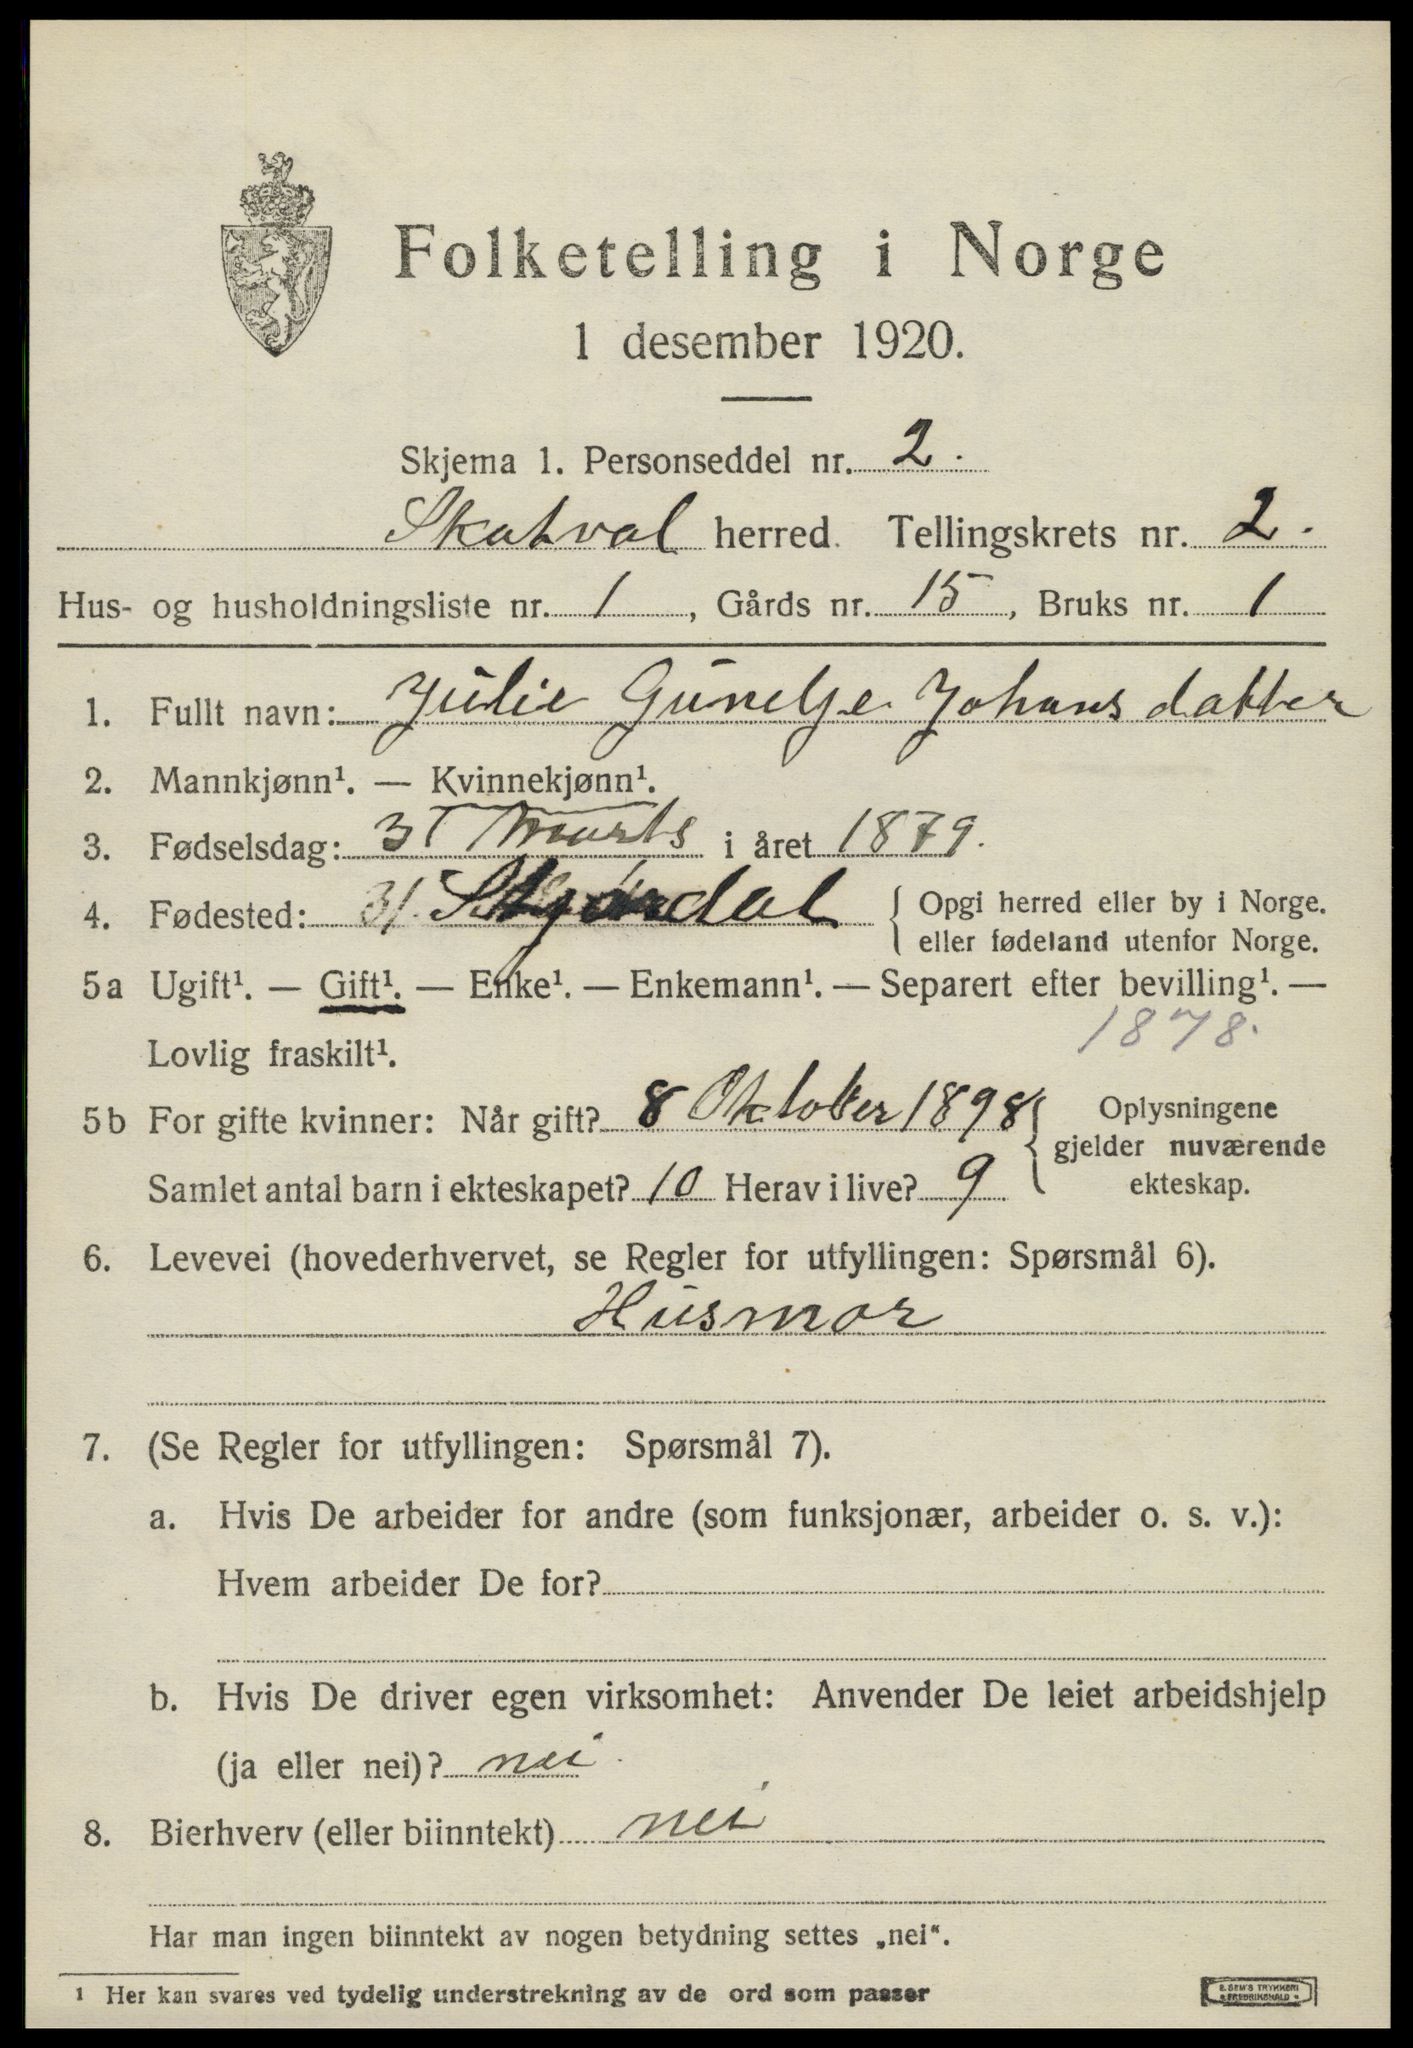 Folketelling i Norge
1 desember 1920.
Skjema 1. Personseddel nr. 2.
Skatval herred. Tellingskrets nr. 2.
Hus- og husholdningsliste nr. 1, Gårds nr. 15, Bruks nr. 1
1. Fullt navn: Julie Johansdatter
2. Mannkjønn¹. — Kvinnekjønn¹.
3. Fødselsdag: 31 Marts i året 1879.
4. Fødested: 31. Stjørdal { Opgi herred eller by i Norge.
eller fødeland utenfor Norge.
5a Ugift¹. — Gift¹. — Enke¹. — Enkemann¹. — Separert efter bevilling¹. —
1878.
Lovlig fraskilt¹.
5b For gifte kvinner: Når gift? 8 Oktober 1898 { Oplysningene
gjelder nuværende
Samlet antal barn i ekteskapet? 10 Herav i live? 9 ekteskap.
6. Levevei (hovederhvervet, se Regler for utfyllingen: Spørsmål 6).
Husmor
7. (Se Regler for utfyllingen: Spørsmål 7).
a. Hvis De arbeider for andre (som funksjonær, arbeider o. s. v.):
Hvem arbeider De for?
b. Hvis De driver egen virksomhet: Anvender De leiet arbeidshjelp
(ja eller nei)? nei.
8. Bierhverv (eller biinntekt) nei
Har man ingen biinntekt av nogen betydning settes „nei“.
¹ Her kan svares ved tydelig understrekning av de ord som passer
E. SEM'S TRYKKERI
FREDRIKSHALD